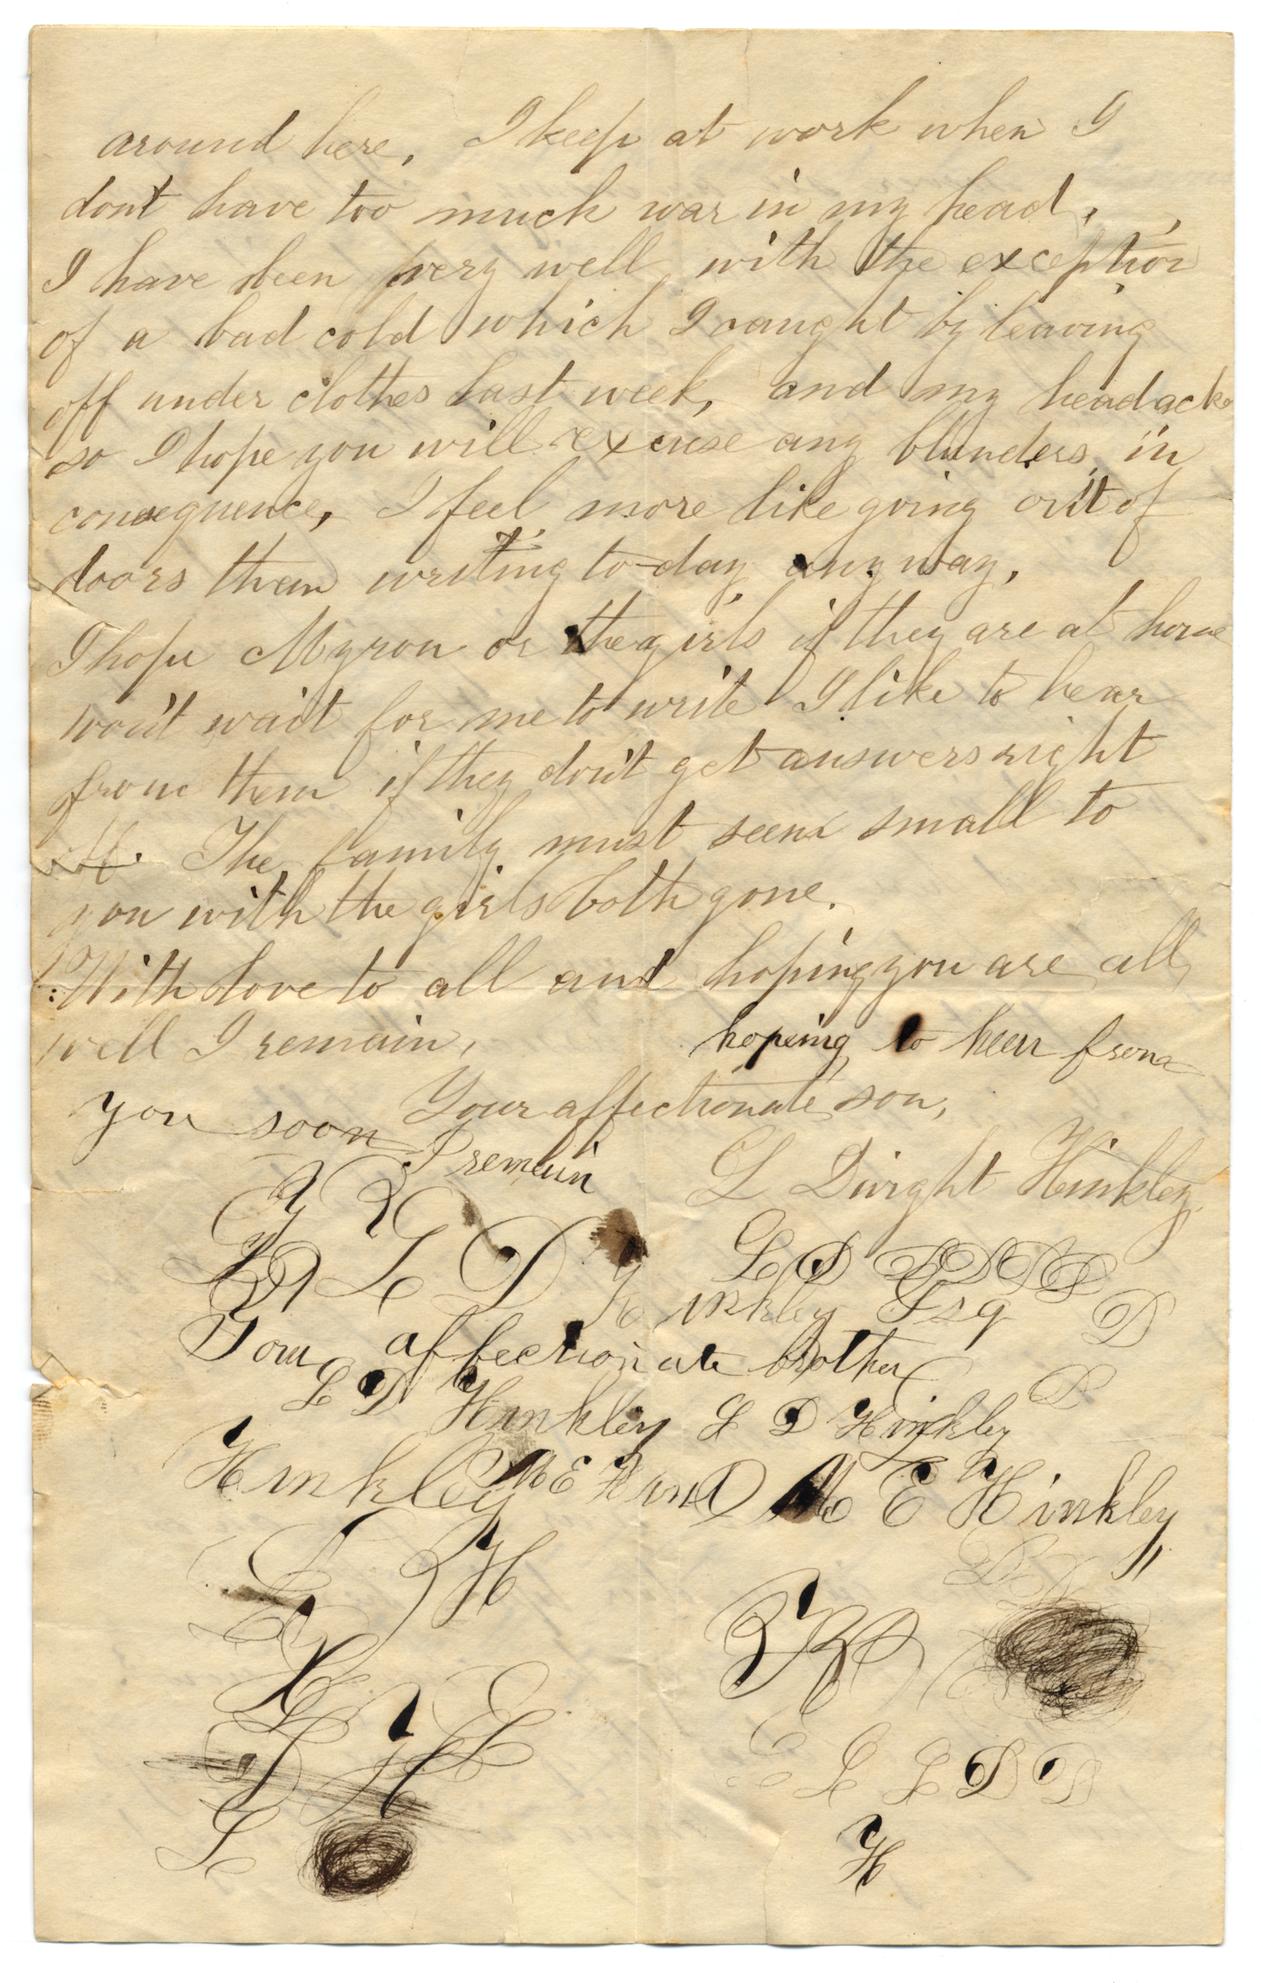 around here. I keep at work when I
dont have too much war in my head.
I have been very well with the exception
of a bad cold which I caught by leaving
off under clothes last week, and my headache
so I hope you will excuse any blunders in
consequence, I feel more like going out of
doors than writing to-day anyway.
I hope Myron or the girls if they are at home
won't wait for me to write I like to hear
from them if they don't get answers right
off. The family must seem small to
you with the girls both gone.
With love to all and hoping you are all
well I remain,
hoping to hear from
Your affectionate son,
you soon I remain
L Dwight Hinkley
L D
L D
Hinkley Esq
D
Your affectionate brother
L D Hinkley L D Hinkley
Hinkley M E Hin M E Hinkley
H
L L D D
L
H